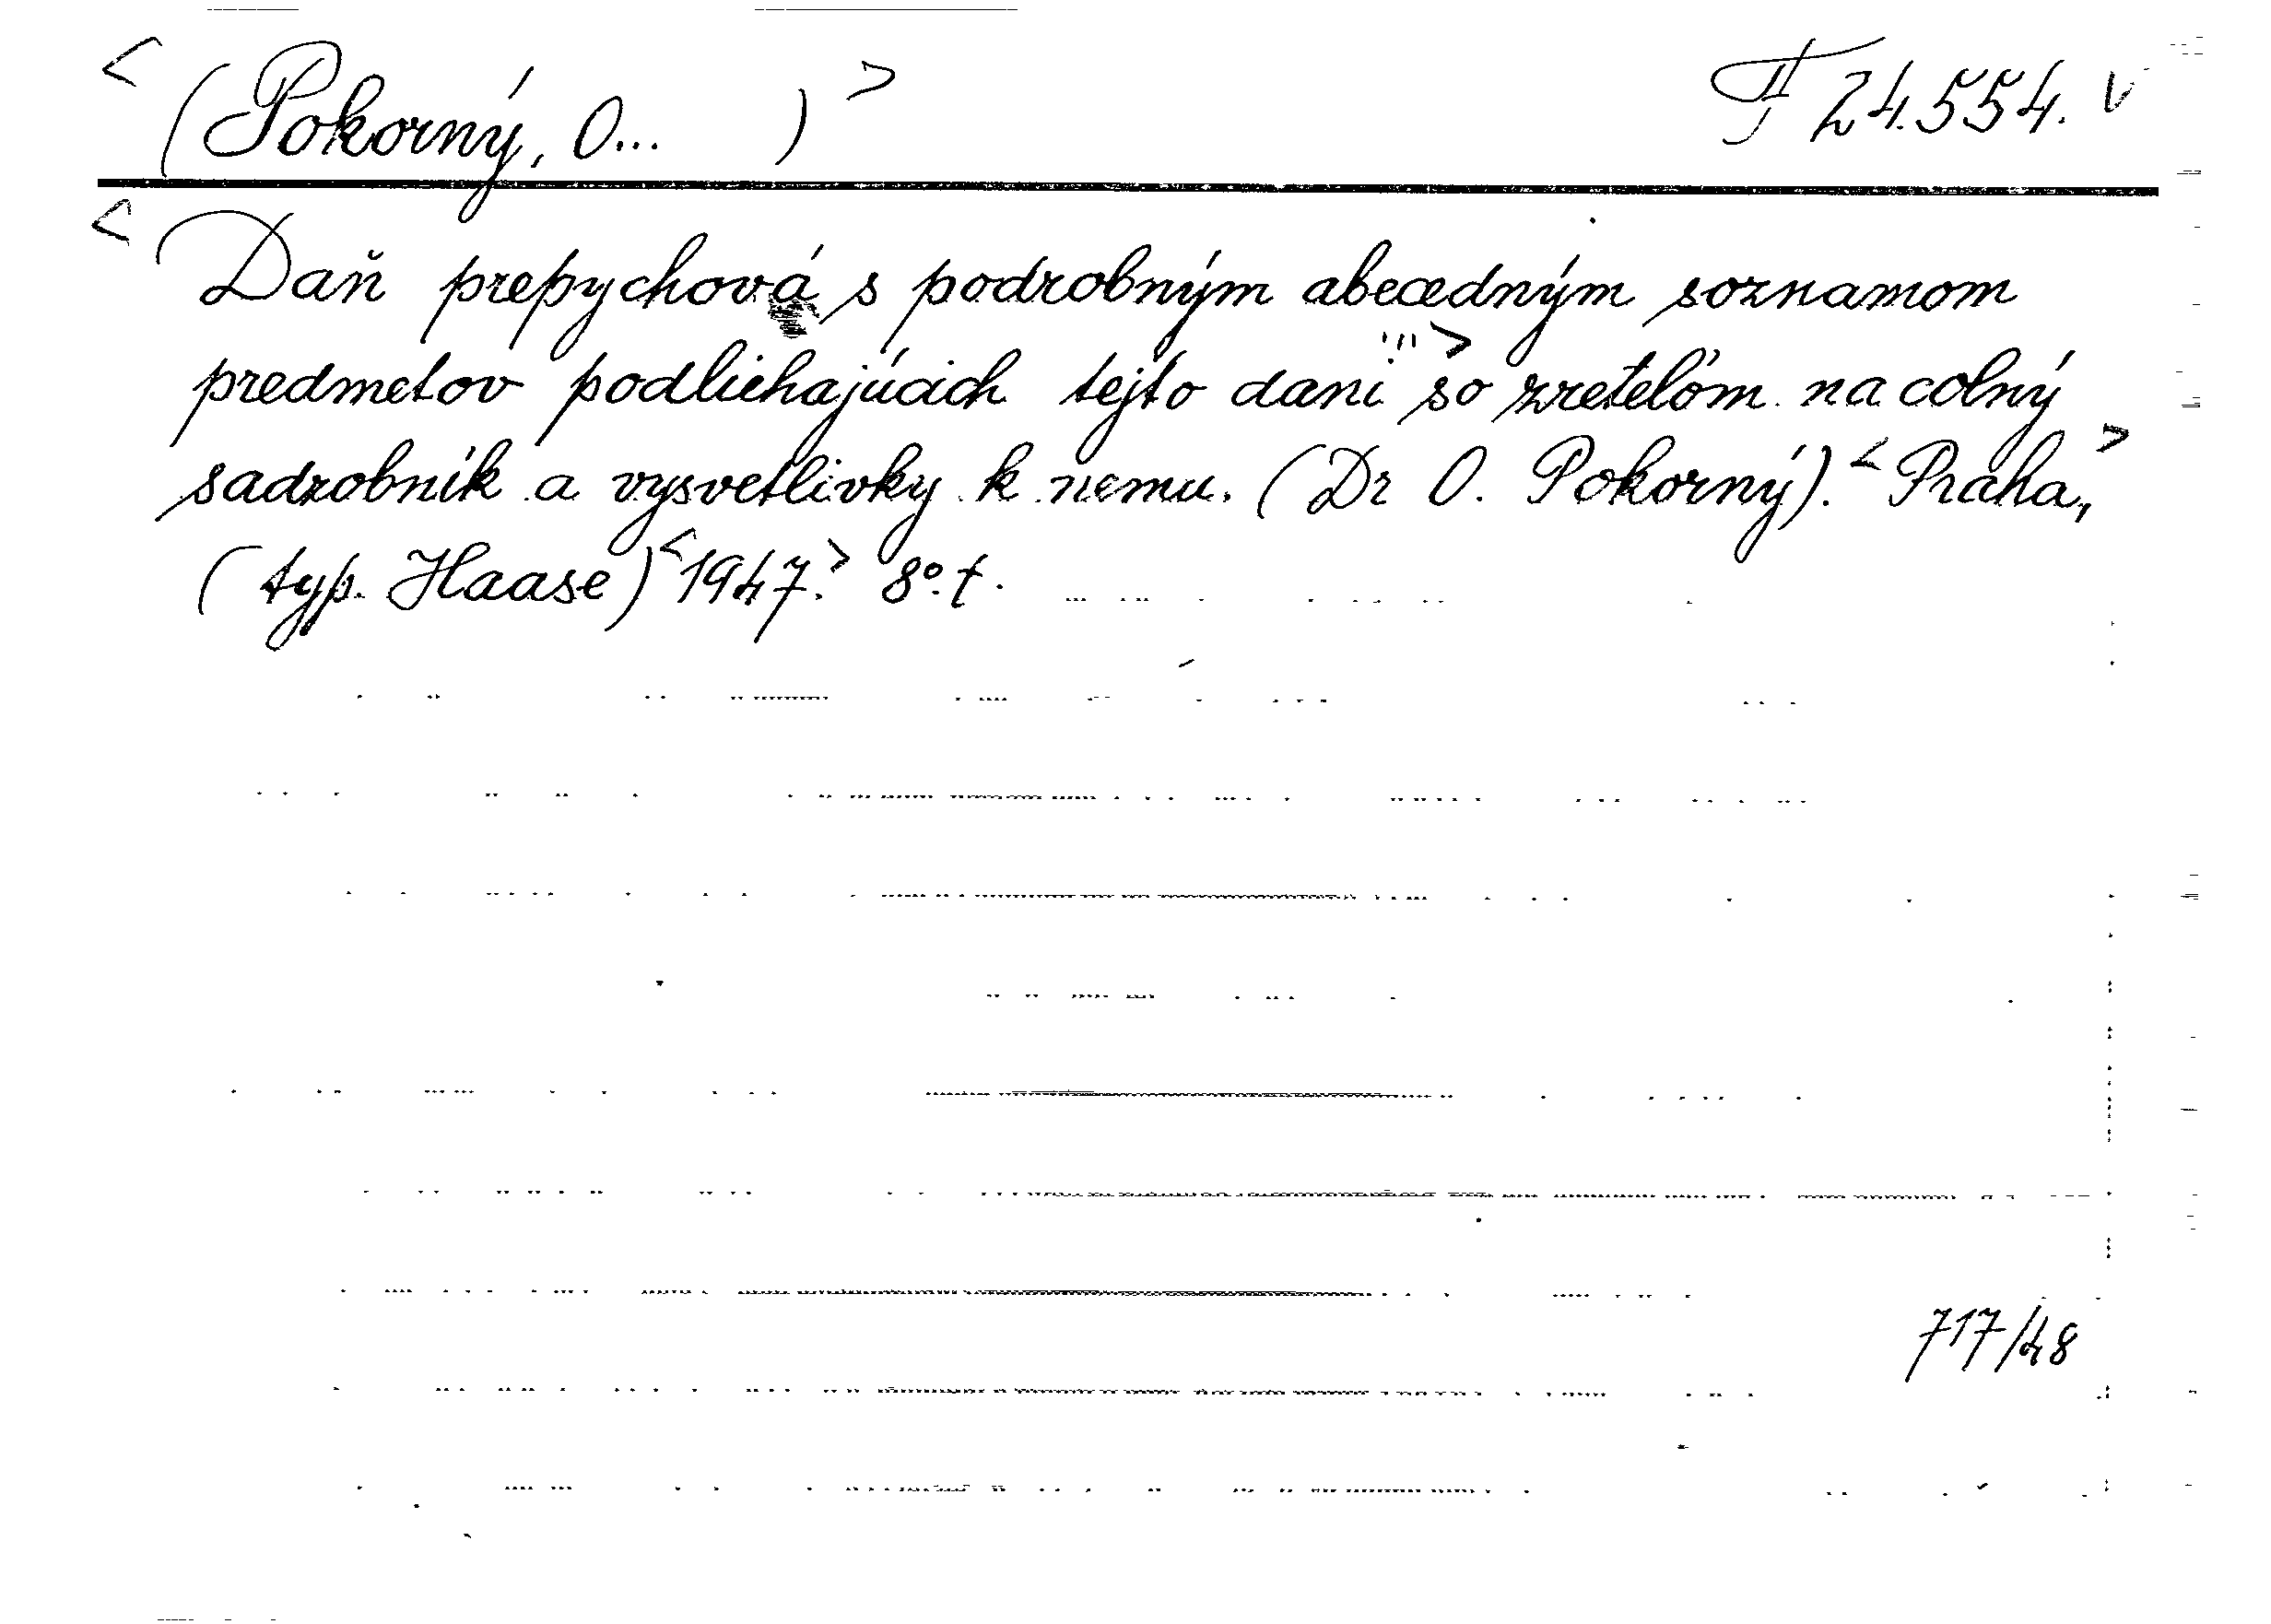 <(Pokorný, O... )> II 24.554. v
<Daň prepychová s podrobným abecedným soznamom
predmetov podliehajúcich tejto dani ...> so zreteľom na colný
sadzobník a vysvetlivky k nemu. (Dr O. Pokorný). <Praha,>
(typ. Haase) <1947.> 8° f.
717/48